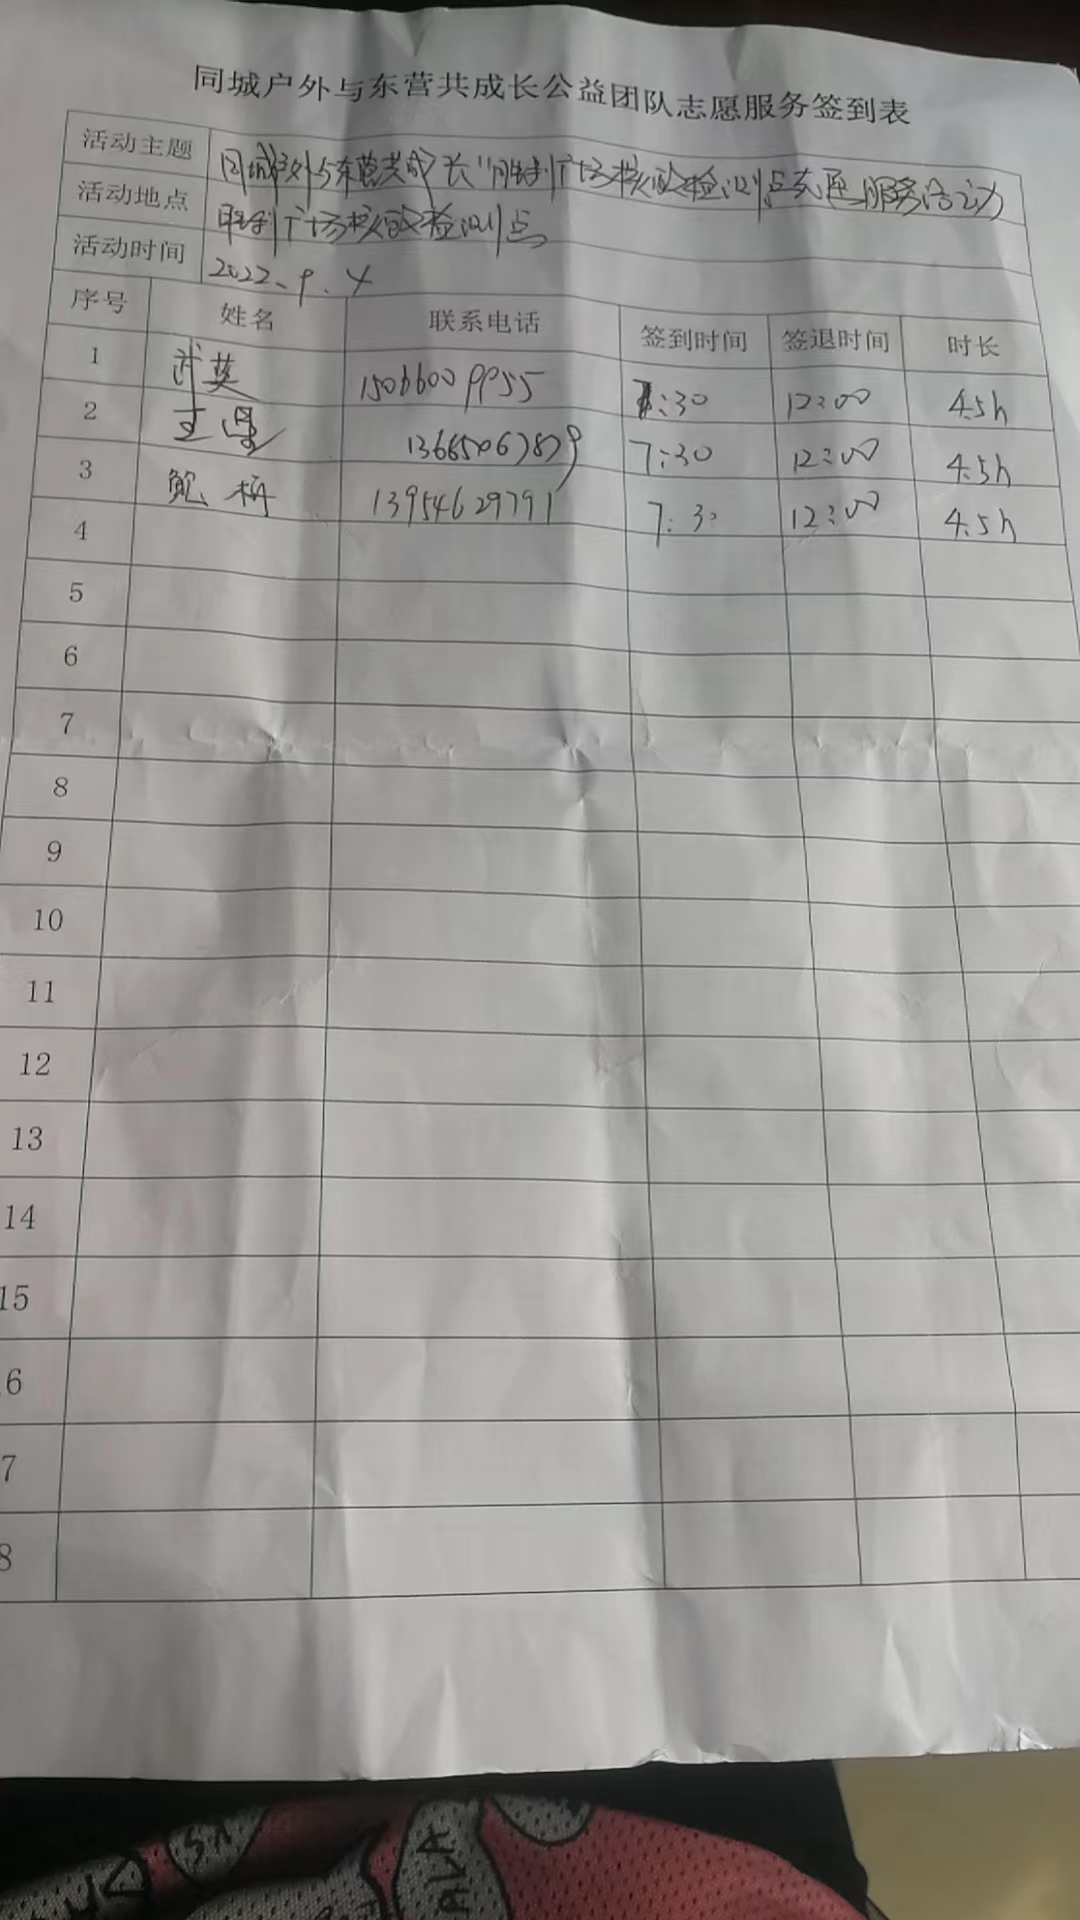 同城户外与东营共成长公益团队志愿服务签到表
活动主题 同城户外与东营共成长"胜利广场核酸检测点志愿服务活动
活动地点 胜利广场核酸检测点
活动时间 2022.9.4
序号 姓名 联系电话 签到时间 签退时间 时长
1 武英 15066009955 7:30 12:00 4.5h
2 王 7:30 12:00 4.5h
3 鲍 13954629791 7:30 12:00 4.5h
4
5
6
7
8
9
10
11
12
13
14
15
6
7
8